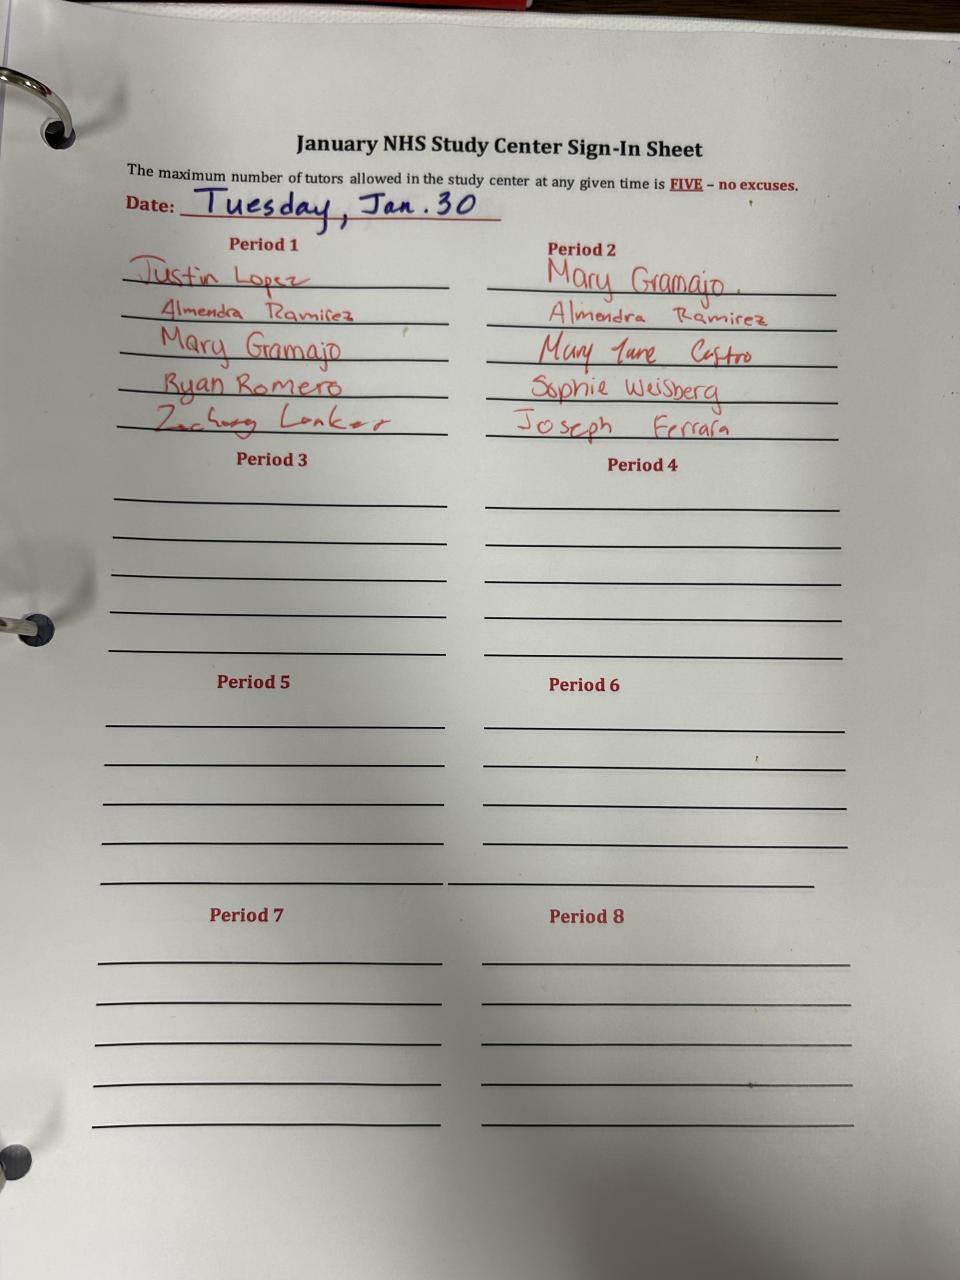 January NHS Study Center Sign-In Sheet
The maximum number of tutors allowed in the study center at any given time is FIVE – no excuses.
Date: Tuesday, Jan. 30
Period 1
Justin Lopez
Almendra Ramirez
Mary Gramajo
Ryan Romero
Zachary Lonker
Period 2
Mary Gramajo
Almendra Ramirez
Mary Jane Castro
Sophie Weisberg
Joseph Ferrara
Period 3
Period 4
Period 5
Period 6
Period 7
Period 8